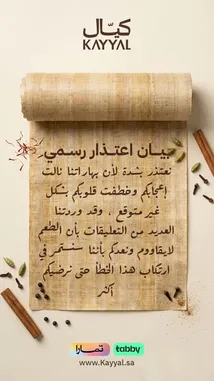 كيّال
KAYYAL
بيان اعتذار رسمي
نعتذر بشدة لأن بهاراتنا نالت
إعجابكم وخطفت قلوبكم بشكل
غير متوقع ، وقد وردتنا
العديد من التعليقات بأن الطعم
لايقاووم ونعدكم بأننا سنستمر في
ارتكاب هذا الخطأ حتى نرضيكم
أكثر
تمارا tabby
www.Kayyal.sa